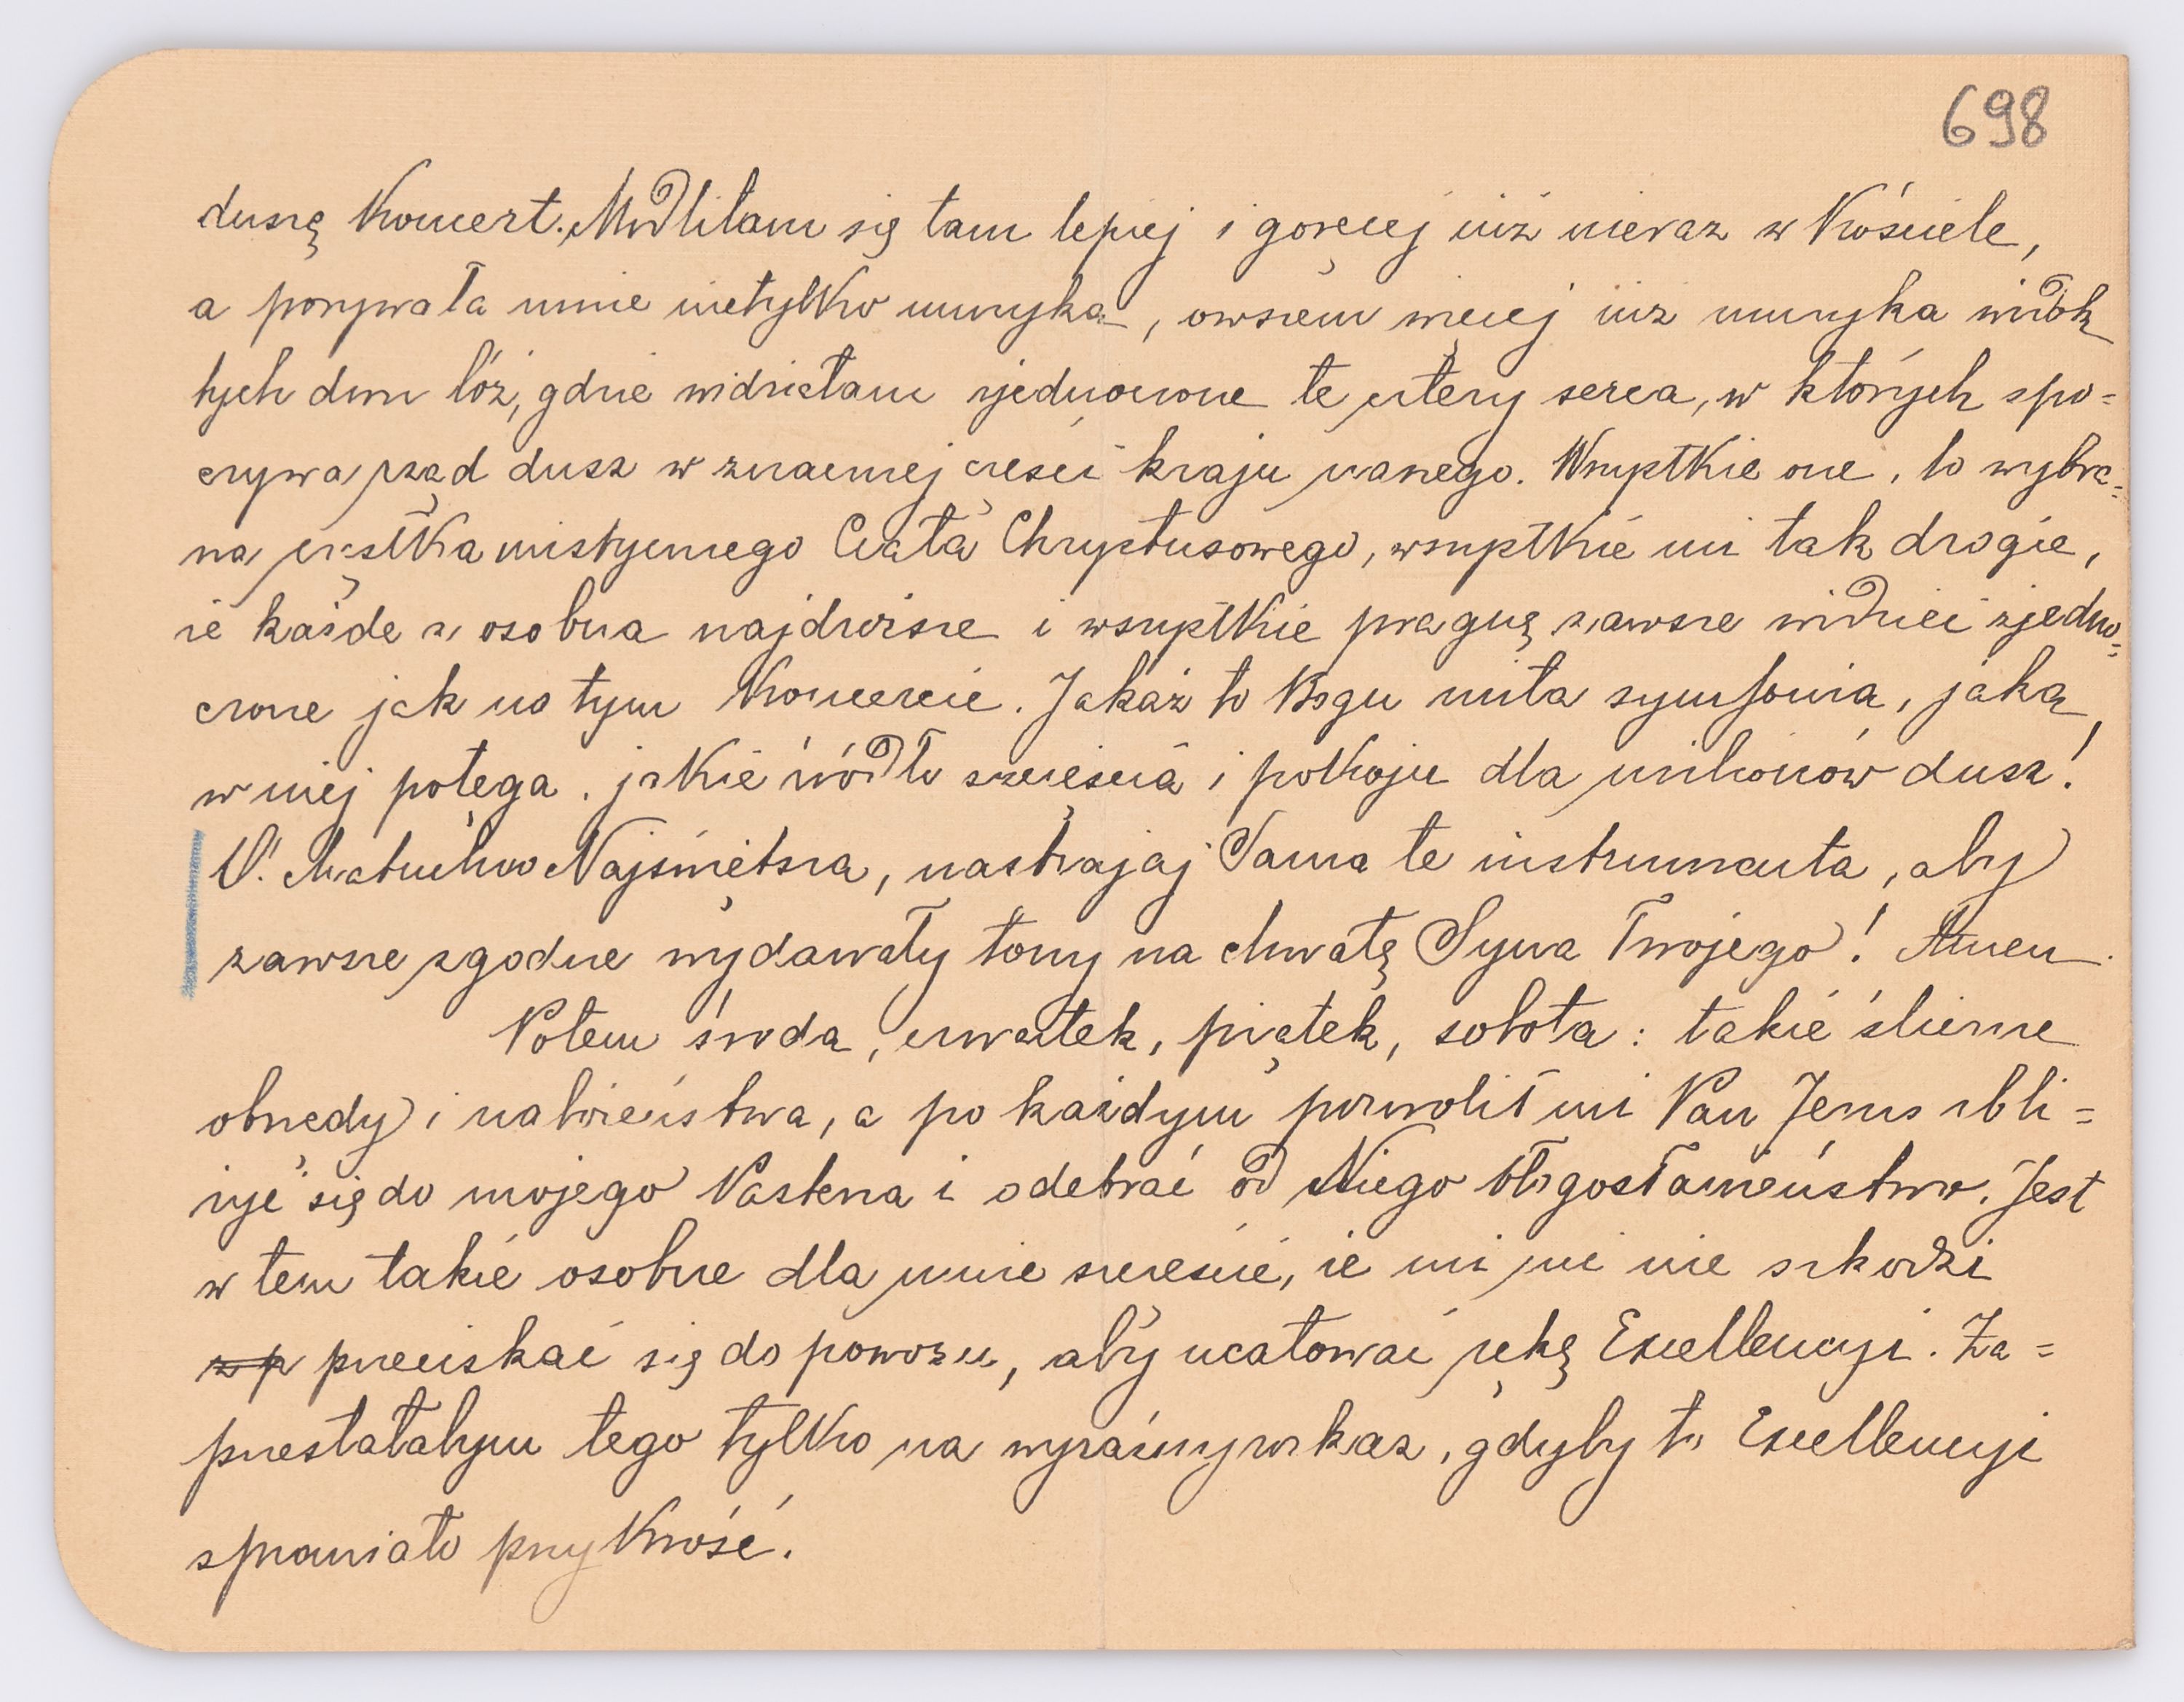 698
duszę Koncert. Modliłam się tam lepiej i goręcej niż nieraz w Kościele,
a porywała mnie nietylko muzyka, owszem więcej niż muzyka widok
tych dwu lóż, gdzie widziałam zjednoczone te cztery serca, w których spo=
czywa rząd dusz w znacznej części kraju naszego. Wszystkie one, to wybra=
na cząstka mistycznego Ciała Chrystusowego, wszystkie mi tak drogie,
że każde z osobna najdroższe i wszystkie pragnę zawsze widzieć zjedno=
czone jak na tym Koncercie. Jakaż to Bogu miła symfonia, jaka
w niej potęga, jakie źródło szczęścia i pokoju dla milionów dusz!
O! Matuchno Najświętsza, nastrajaj Sama te instrumenta, aby
zawsze zgodne wydawały tony na chwałę Syna Twojego! Amen.
Potem środa, czwartek, piątek, sobota: takie śliczne
obrzędy i nabożeństwa, a po każdym pozwolił mi Pan Jezus zbli=
żyć się do mojego Pasterza i odebrać od Niego błogosławieństwo. Jest
w tem takie osobne dla mnie szczęście, że mi nic nie szkodzi
przeciskać się do powozu, aby ucałować rękę Excellencyi. Za=
przestałabym tego tylko na wyraźny rozkaz, gdyby to Excellencyi
sprawiało przykrość.